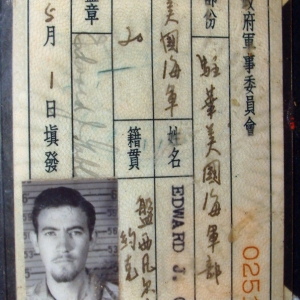 政府軍事委員會
025
部份 駐華美國海軍部
姓名 EDWARD J.
美國海軍 籍貫 盤西凡
約克
20
章
5月1日填發